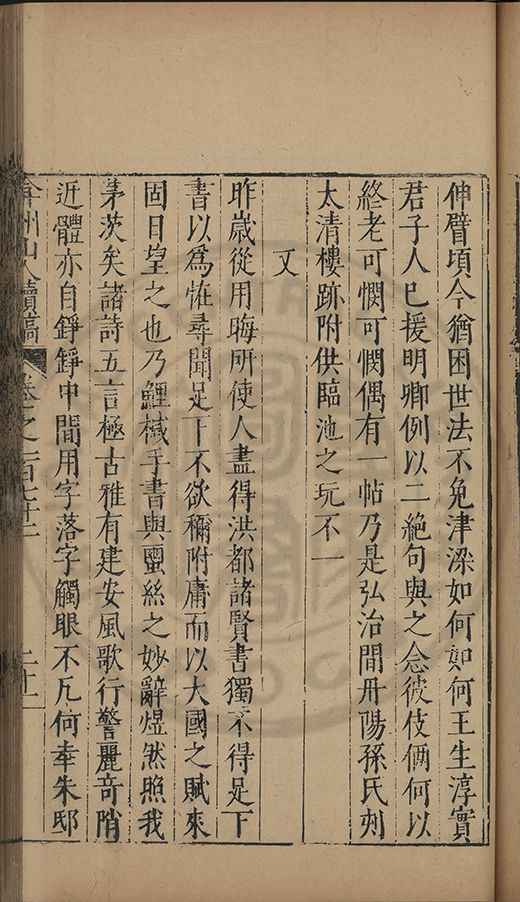 伸臂頃今猶困世法不免津梁如何如何王生淳實
君子人已援明卿例以二絕句與之念彼伎倆何以
終老可憫可憫偶有一帖乃是弘治間丹陽孫氏刻
太清樓跡附供臨池之玩不一
又
昨歲從用晦所使人盡得洪都諸賢書獨不得足下
書以爲恠尋聞足下不欲稱附庸而以大國之賦來
固日望之也乃鯉械手書與蜀絲之妙辭煜然照我
茅茨矣諸詩五言極古雅有建安風歌行警麗竒陗
近體亦自錚錚中間用字落字觸眼不凡何幸朱邸
弇州山人續稿 卷之一百七十二 二十二